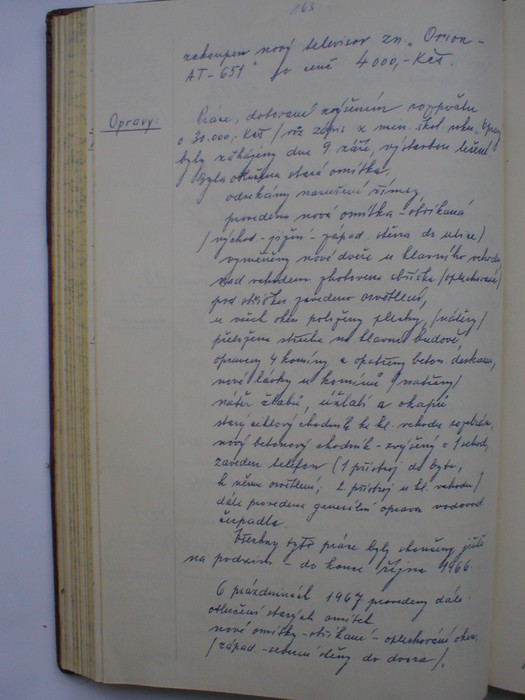 163
zakoupen nový televisor zn. "Orion-
AT-651" v ceně 4000,- Kčs.
Opravy:
Práce, dotované zvýšením rozpočtu
o 30.000,- Kčs / viz zápis z min. škol. roku,
byly zahájeny dne 9. září, výstavbou lešení.
Byla otlučena stará omítka,
odsekány narušené římsy,
provedena nová omítka - stříkaná
/ východ - jižní - západ. stěna do ulice /
vyměněny nové dveře u hlavního vchodu
nad vchodem zhotovena stříška / oplechovaná /
pod stříškou zavedeno osvětlení,
u všech oken položeny plechy / nátěry /
přeložena střecha na hlavní budově,
opraveny 4 komíny a opatřeny beton. deskami,
nové lávky u komínů / natřeny /
nátěr žlabů, úžlabí a okapů
starý cihlový chodník ke hl. vchodu rozebrán,
nový betonový chodník - zvýšený o 1 schod,
zaveden telefon (1 přístroj do bytu,
k němu osvětlení; 2. přístroj u hl. vchodu)
dále provedena generální oprava vodovod.
čerpadla.
Všechny tyto práce byly skončeny ještě
na podzim - do konce října 1966.
O prázdninách 1967 provedeny dále
otlučení starých omítek
nové omítky - stříkané - oplechování oken,
/ západ. - severní stěny do dvora /.